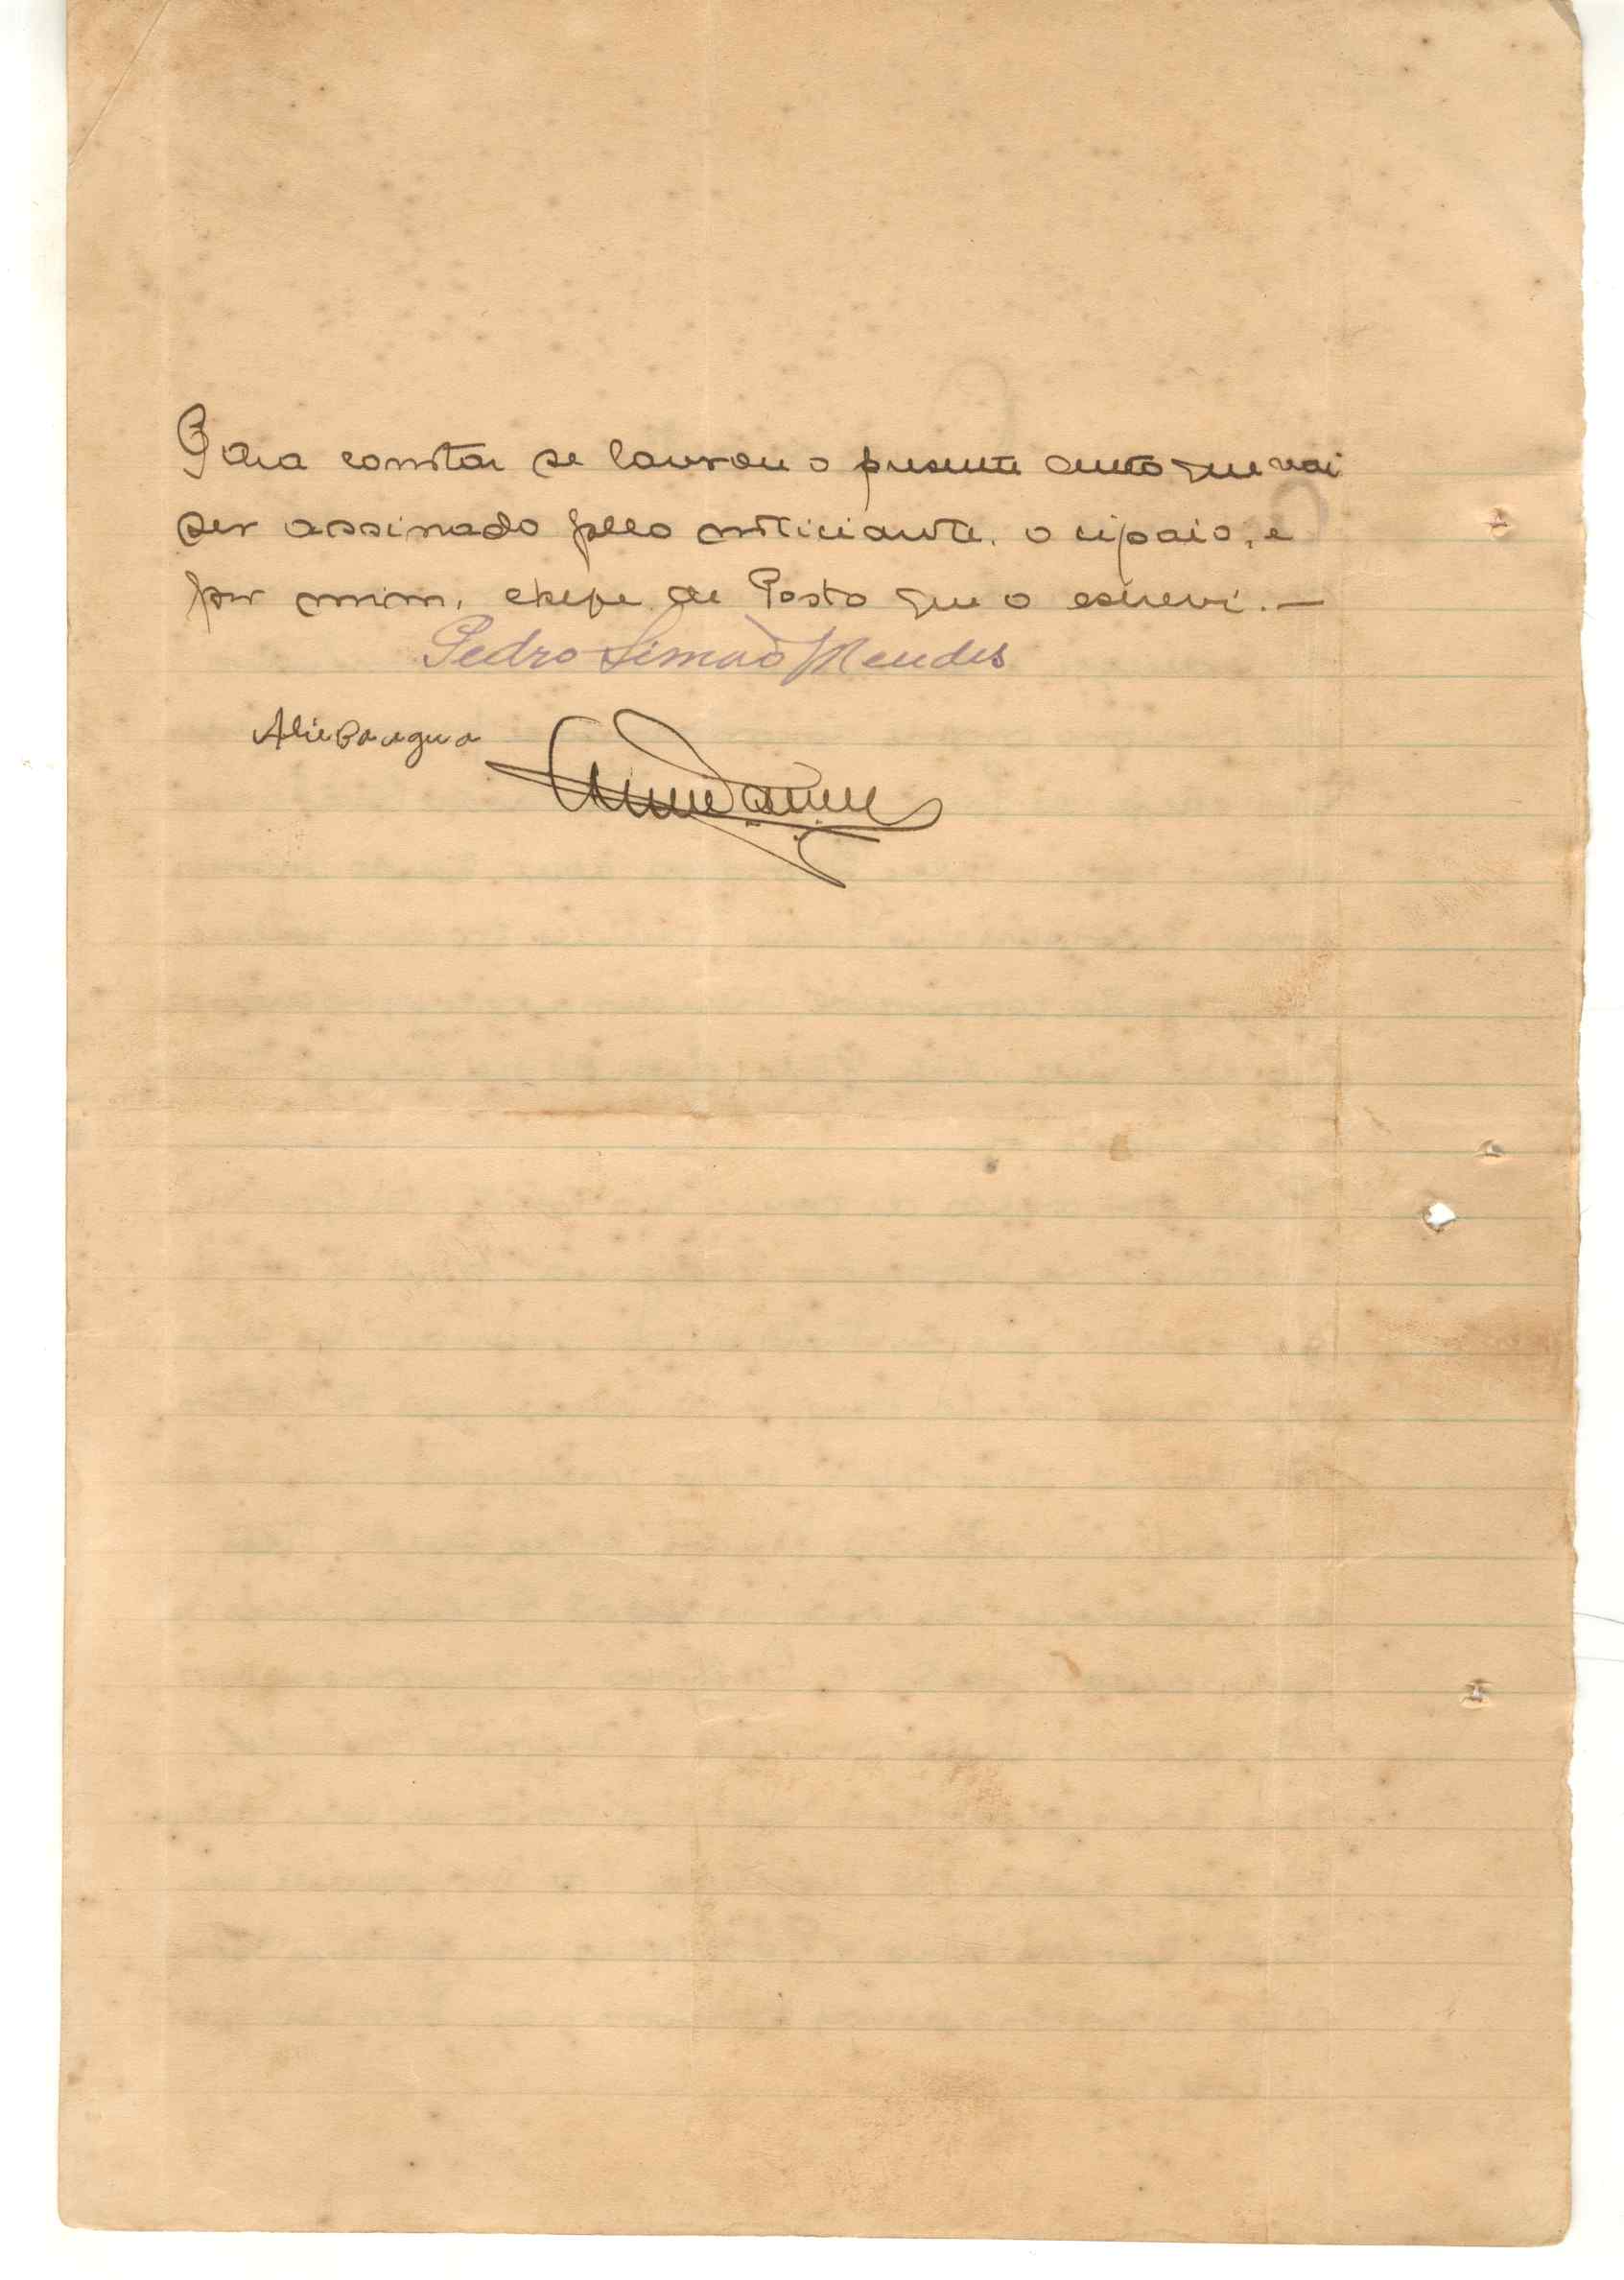 Para constar se lavrou o presente auto que vai
ser assinado pelo noticiante, o cipaio, e
por mim, chefe de Posto que o escrevi. —
Pedro Simão Mendes